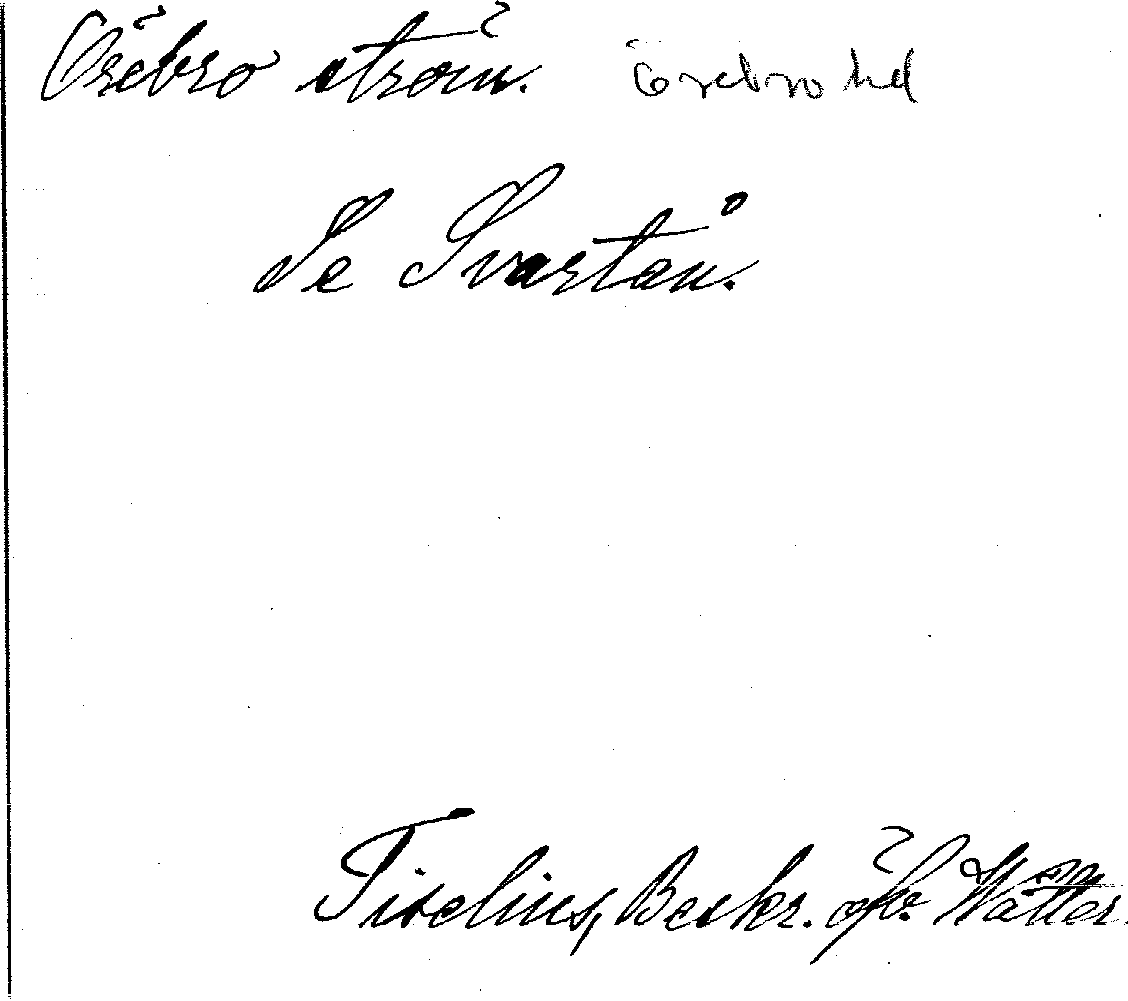 Örebro ström. Örebro hd
Se Svartån.
Tiselius, Beskr. öfv. Wätter.